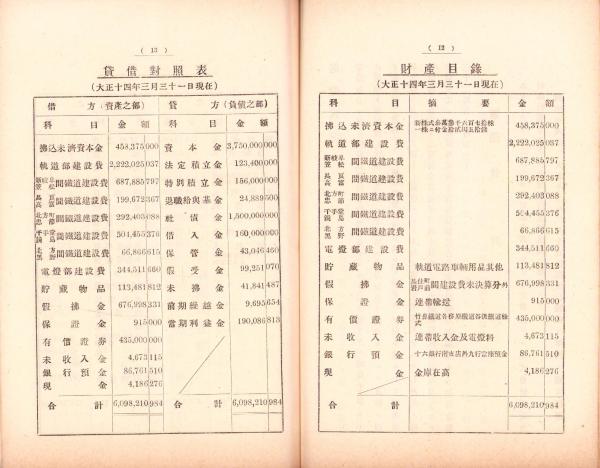 ( 13 )
貸借對照表
(大正十四年三月三十一日現在)
借方(資產之部) 貸方(負債之部)
科目 金額 科目 金額
拂込未濟資本金 458,375 000 資本金 3,750,000 000
軌道部建設費 2,222,025 037 法定積立金 123,400 000
新岐阜笠松間鐵道建設費 687,885 797 特別積立金 156,000 000
長良高富間鐵道建設費 199,672 367 退職給與基金 24,889 500
北方町忠節間鐵道建設費 292,403 088 社債金 1,500,000 000
千手堂鏡島間鐵道建設費 504,455 376 借入金 160,000 000
北方黑野間鐵道建設費 66,866 615 保管金 43,046 460
電燈部建設費 344,511 660 假受金 99,251 070
貯藏物品 113,481 812 未拂金 41,841 487
假拂金 676,998 331 前期繰越金 9,695 654
保證金 915 000 當期利益金 190,086 813
有價證券 435,000 000
未收入金 4,673 115
銀行預金 86,761 510
現金 4,186 276
合計 6,098,210 984 合計 6,098,210 984
( 12 )
財產目錄
(大正十四年三月三十一日現在)
科目 摘要 金額
拂込未濟資本金 458,375 000
軌道部建設費 2,222,025 037
新岐阜笠松間鐵道建設費 687,885 797
長良高富間鐵道建設費 199,672 367
北方町忠節間鐵道建設費 292,403 088
千手堂鏡島間鐵道建設費 504,455 376
北方黑野間鐵道建設費 66,866 615
電燈部建設費 344,511 660
貯藏物品 軌道電路車輛用品其他 113,481 812
假拂金 間建設費未決算分外 676,998 331
保證金 連帶輸送 915 000
有價證券 435,000 000
未收入金 連帶收入金及電燈料 4,673 115
銀行預金 十六銀行南支店外九行當座預金 86,761 510
現金 金庫在高 4,186 276
合計 6,098,210 984